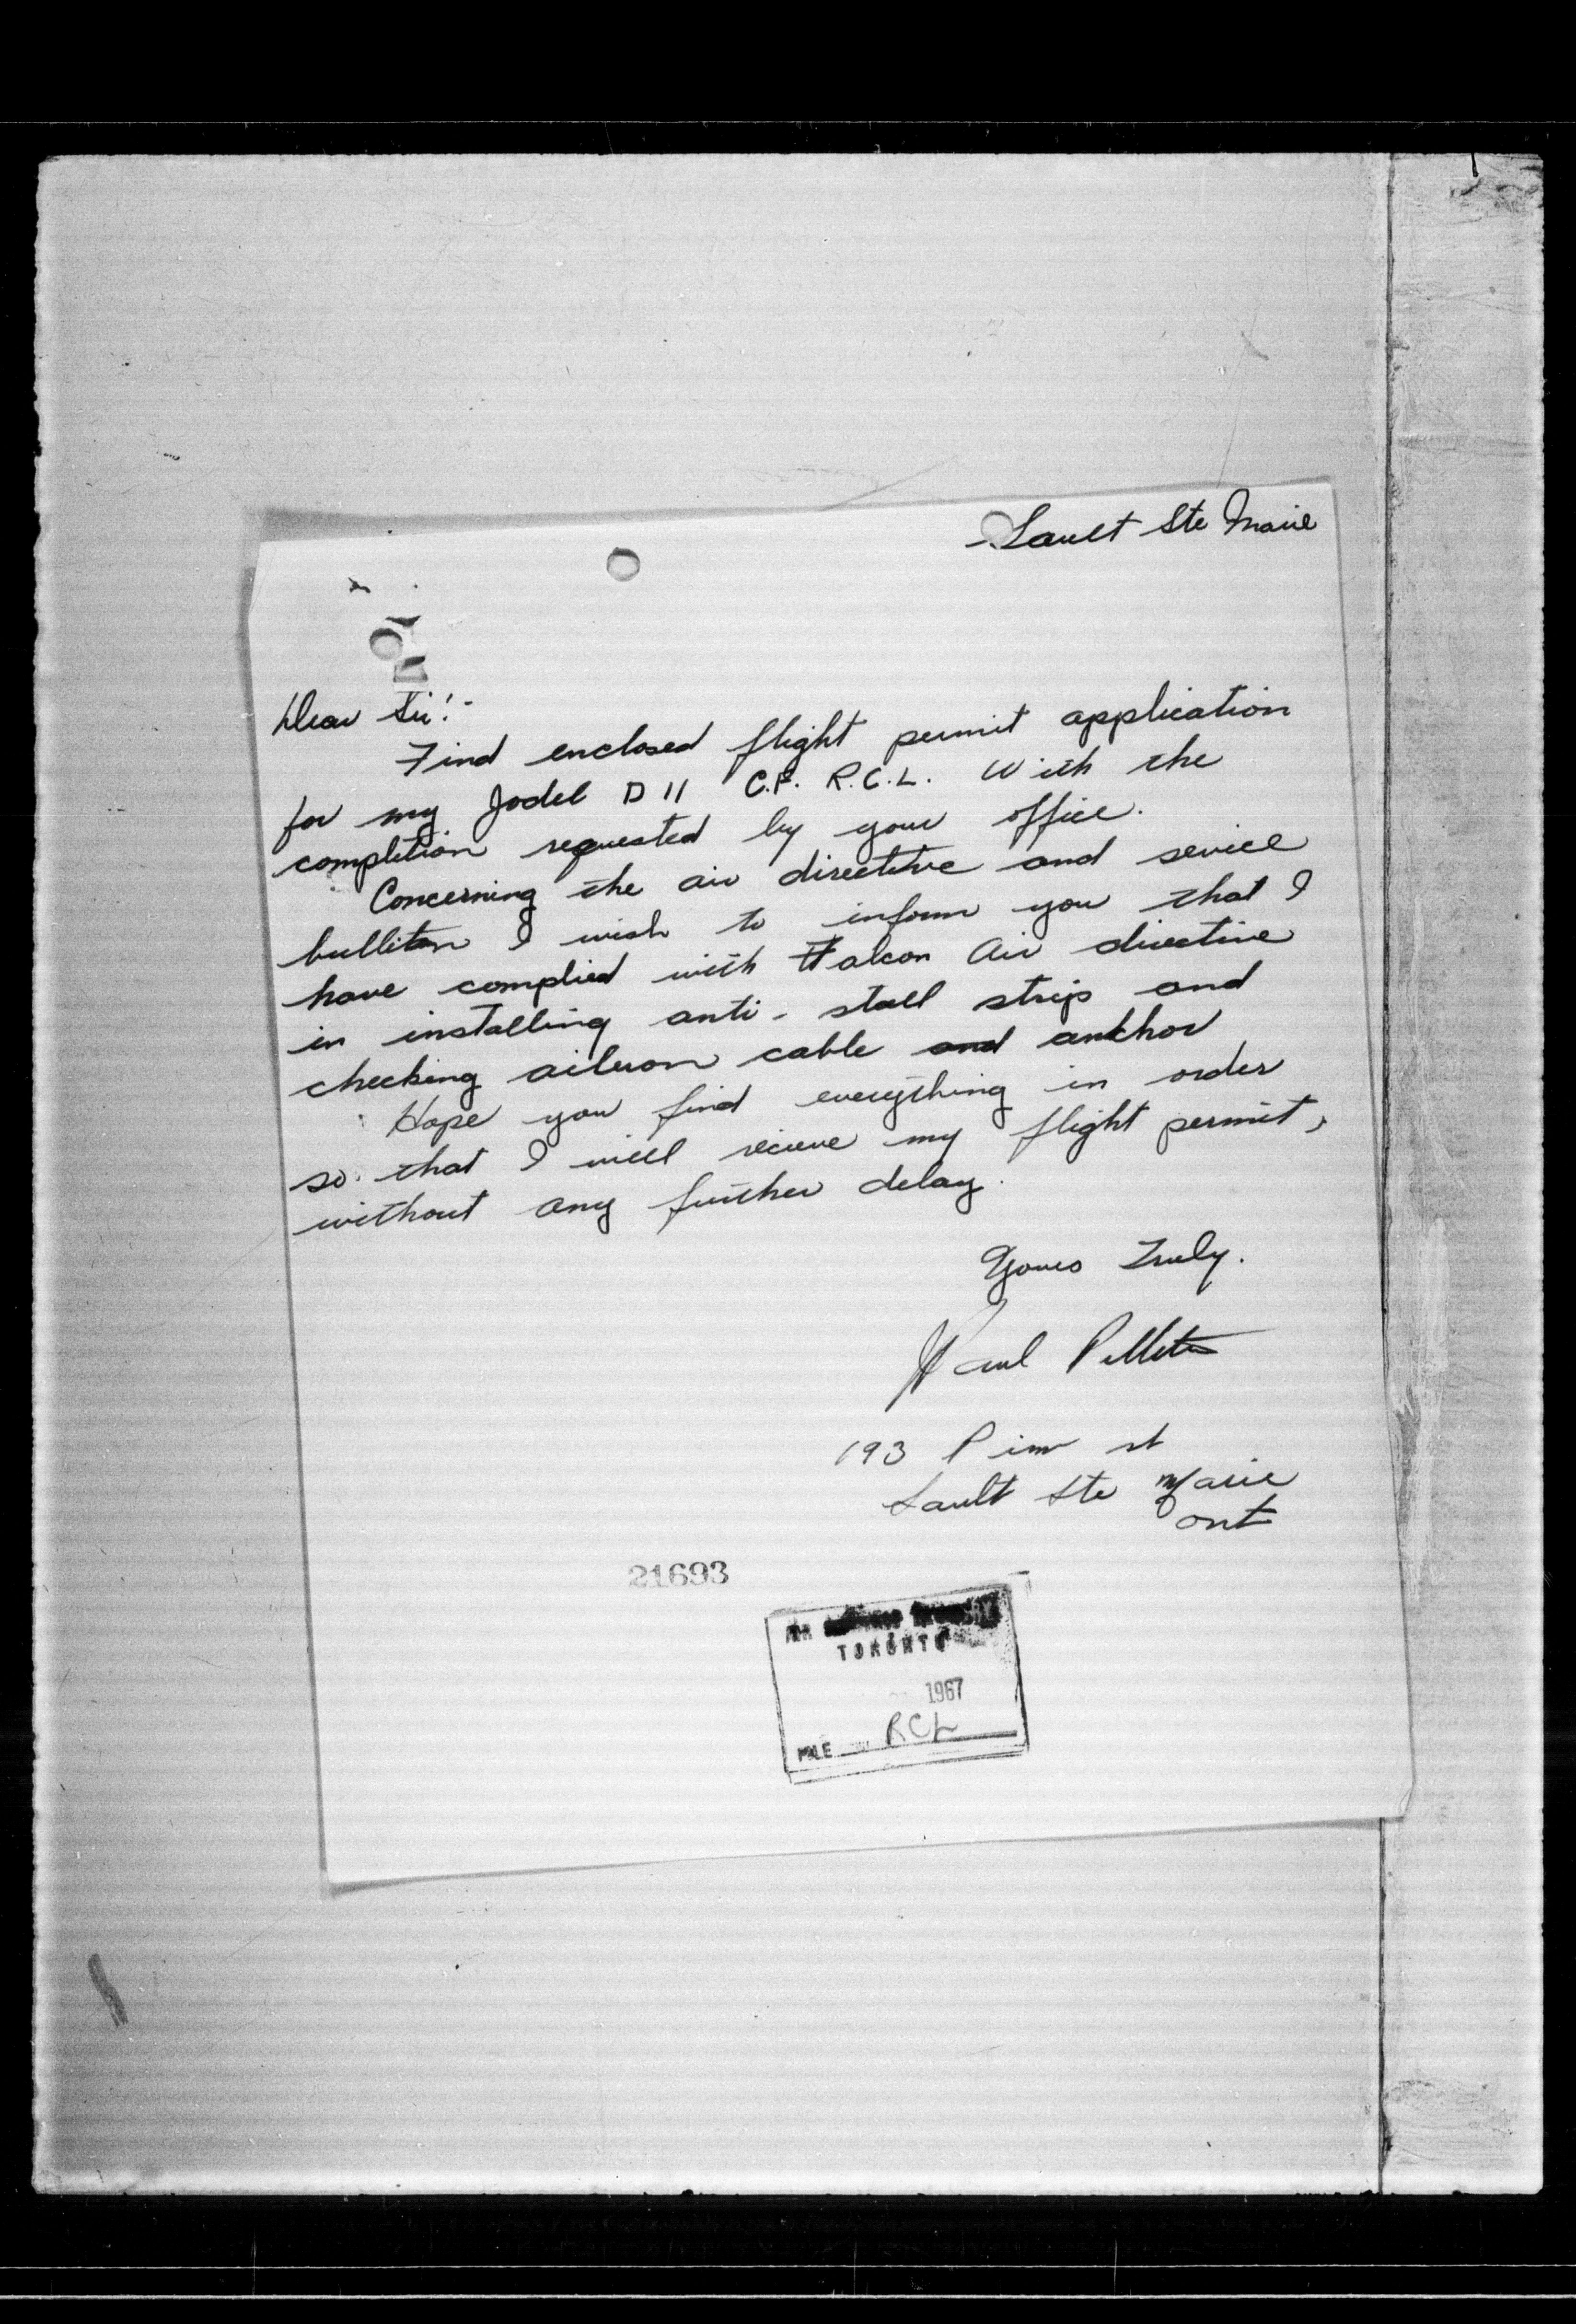 Sault Ste Marie
Dear Sir:-
Find enclosed flight permit application
for my Jodel D 11 C.F. R.C.L. With the
completion requested by your office.
Concerning the air directitive and service
bulliten I wish to inform you that I
have complied with Falcon Air directive
in installing anti-stall strip and
checking aileron cable and anchor
Hope you find everything in order
so that I will recieve my flight permit,
without any further delay.
Yours Truly.
Paul
193 Pim st
Sault Ste Marie
Ont
21693
AIR
TORONTO
1967
RCL
FILE